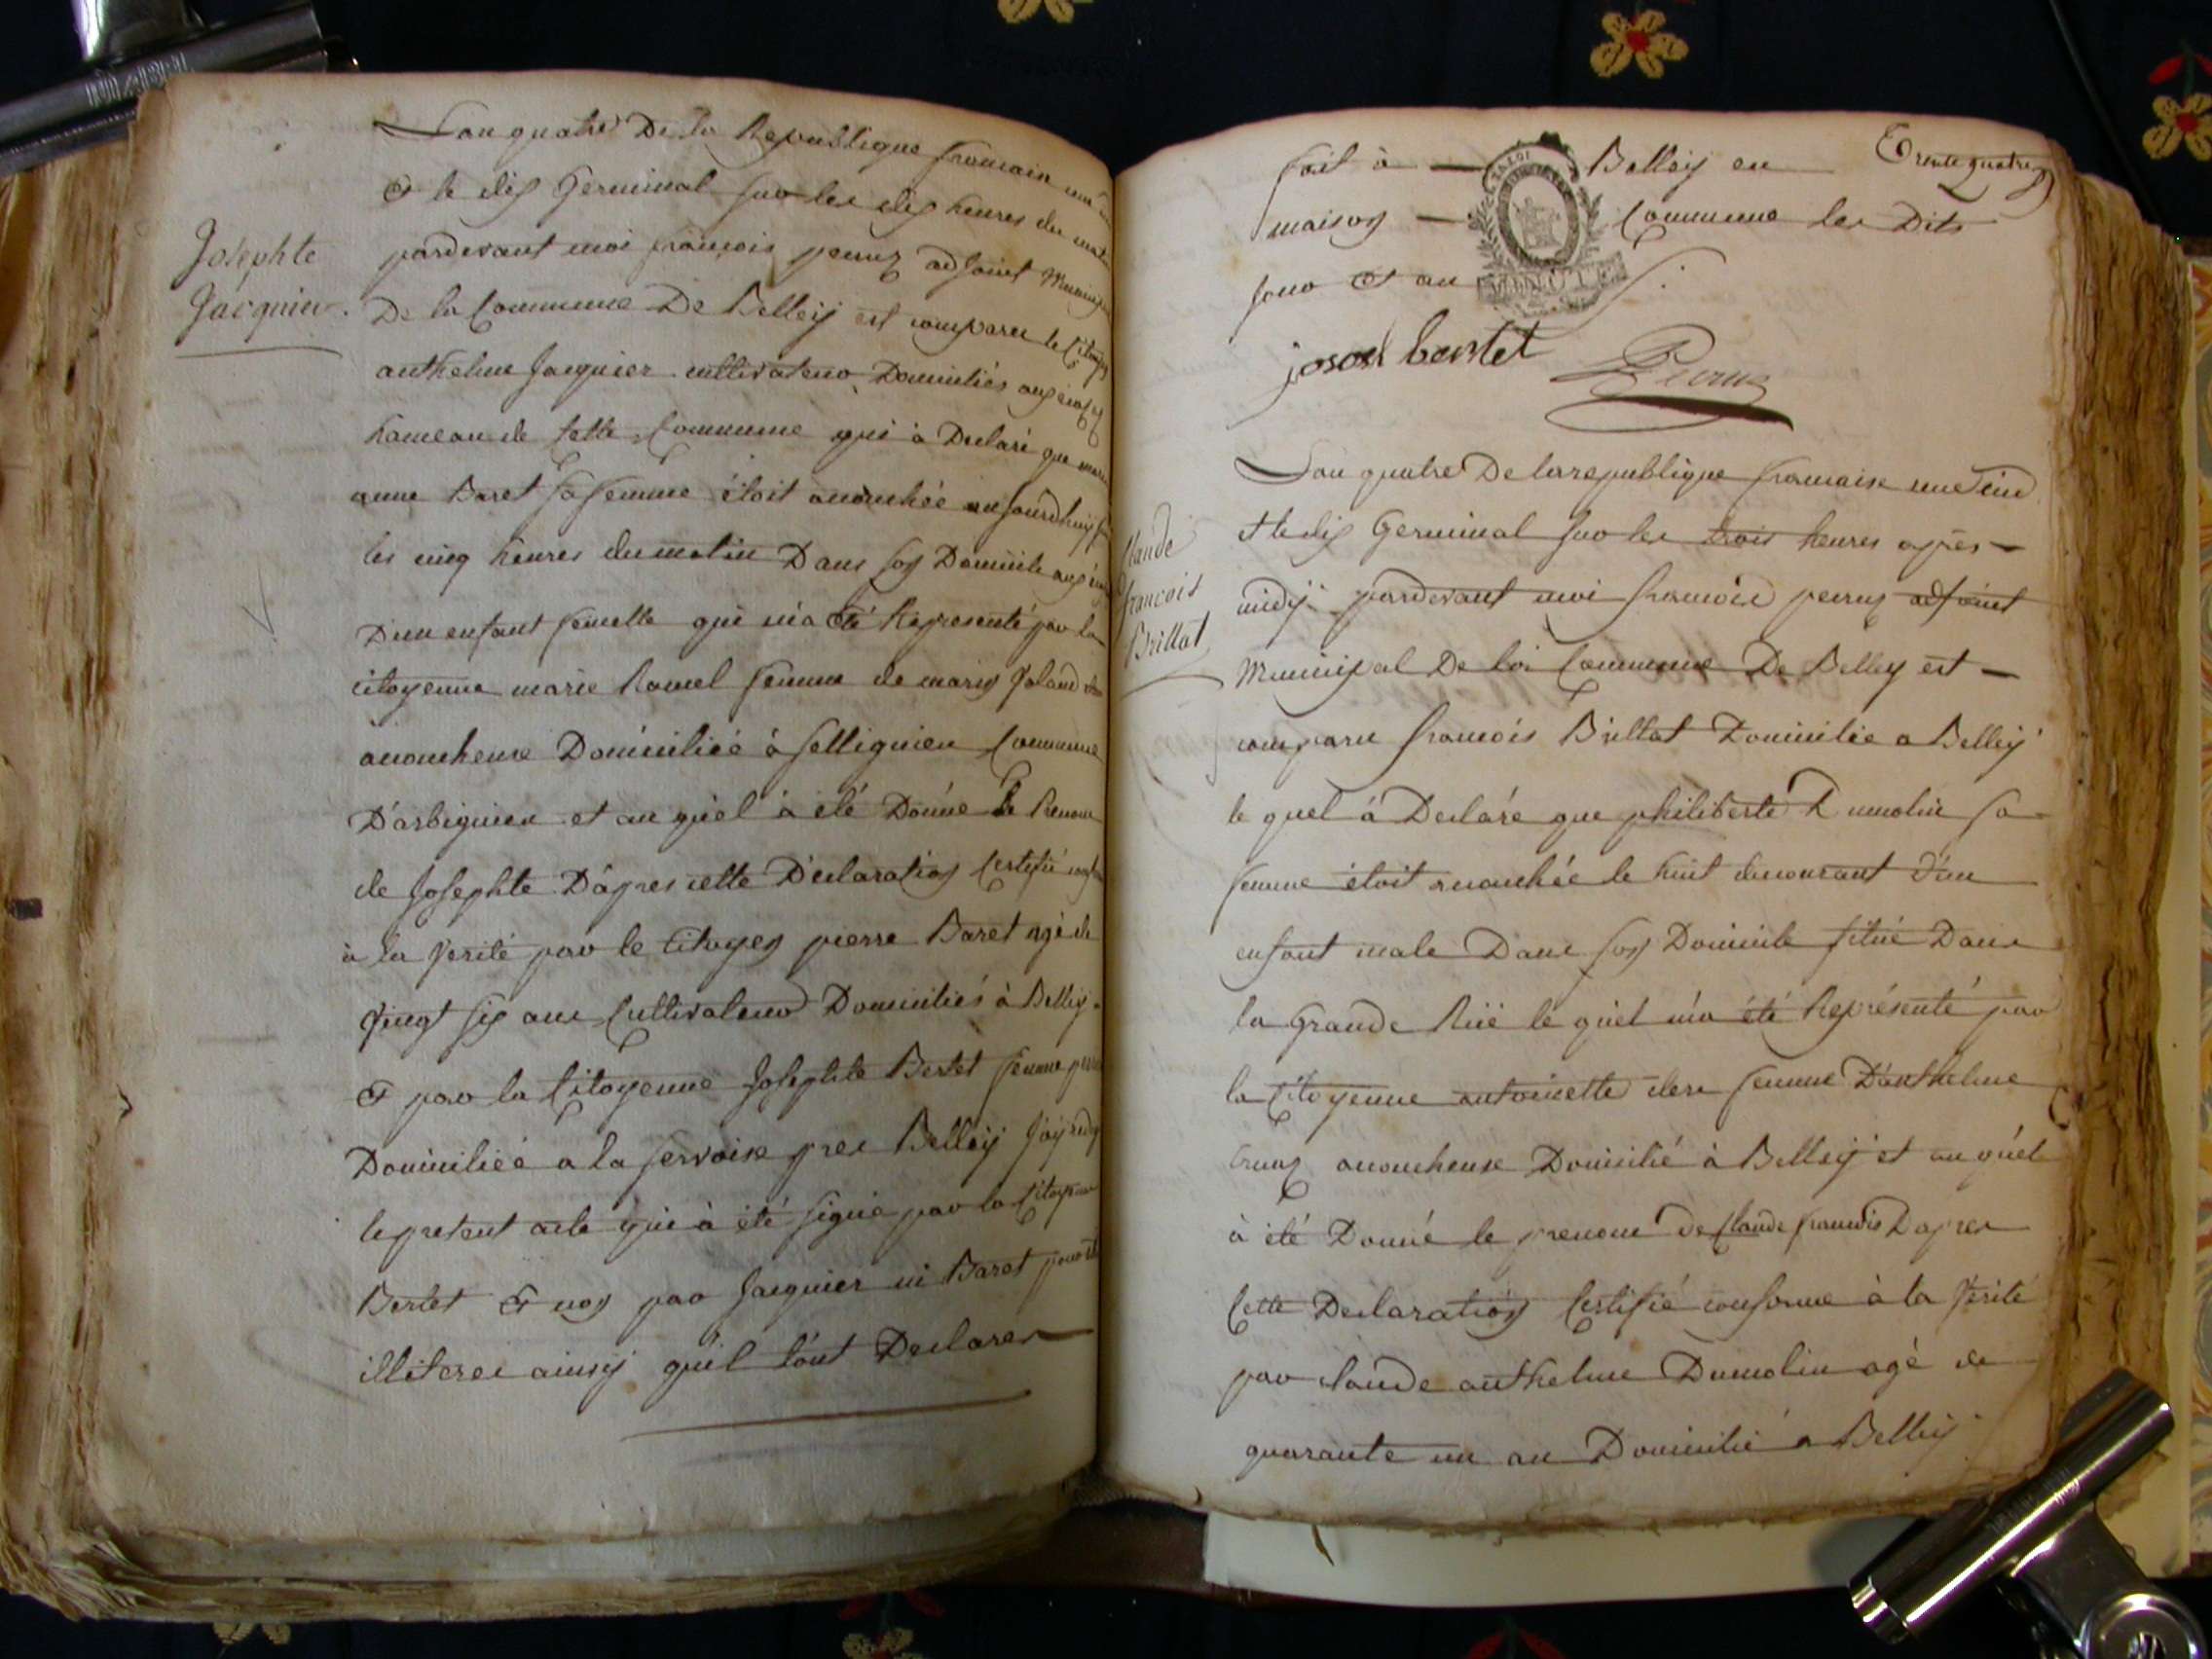 Josephte
Jacquier.
L'an quatre De la Republique francaise une
& le dix Germinal sur les dix heures du matin
pardevant moi françois peruz adjoint Municipal
De la Commune De Belleÿ est comparu le Citoyen
anthelme Jacquier cultivateur Domiciliés
hameau de Cette Commune qui à Declaré que marie
anne Baret sa femme étoit acouchée aujourdhuy
les cinq heures du matin Dans son Domicile
D'un enfant femelle qui m'a été Representé par la
citoyenne marie Ramel femme de marin Jaland
acoucheuse Domiciliée à Selliguieu Commune
D'arbignieu et au quel à été Donné le Prenom
de Josephte D'apres cette Declaration Certifié
à la Verité par le Citoyen pierre Baret agé de
Vingt six ans Cultivateur Domiciliés à Belleÿ.
& par la Citoyenne Josephte Bertet femme
Domiciliée a la servoise pres Belleÿ
le present acte qui à été signé par la Citoyenne
Bertet & non par Jacquier ni Baret pour être
illiterez ainsy qu'il l'ont Declarer
Trente quatre
fait à — Belley en
maison — Commune les Dits
jour & an
LA LOI
MINUTE
josept bertet
Peruz
Claude
francois
Brillat
L'an quatre De la republique francaise une Ind
& le dix Germinal sur les trois heures apres —
midÿ pardevant moi francois peruz adjoint
Municipal De la Commune De Belley est —
comparu francois Brillat Domicilie a Belleÿ
le quel á Declaré que philiberte Dumolin sa
femme étoit acouchée le huit du courant d'un
enfant male Dans son Domicile situé Dans
la Grande Rüe le quel m'a été Représenté par
la Citoyenne antoinette clerc femme D'anthelme
acoucheuse Domicilié à Belleÿ et au quel
à été Donné le prenom de Claude francois D'apres
Cette Declaration Certifié conforme à la Verité
par claude anthelme Dumolin agé de
quarante un an Domicilié a Belleÿ